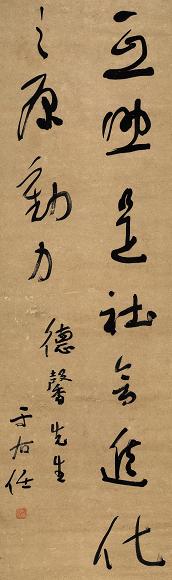 互助是社會進化
之原動力
德馨先生
于右任